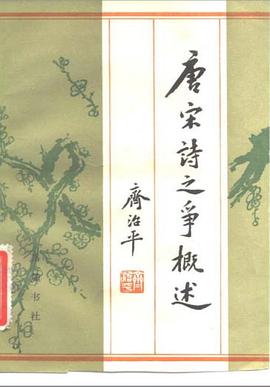 唐宋詩之爭概述
齊治平
书社